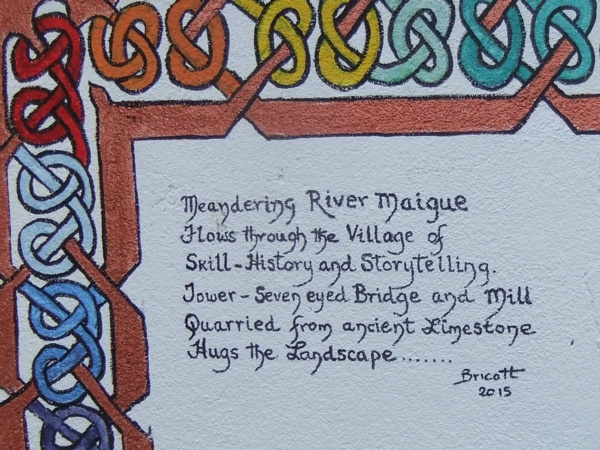 Meandering River Maigue
Flows through the Village of
Skill - History and Storytelling.
Tower - Seven eyed Bridge and Mill
Quarried from ancient Limestone
Hugs the Landscape .......
Bricott
2015